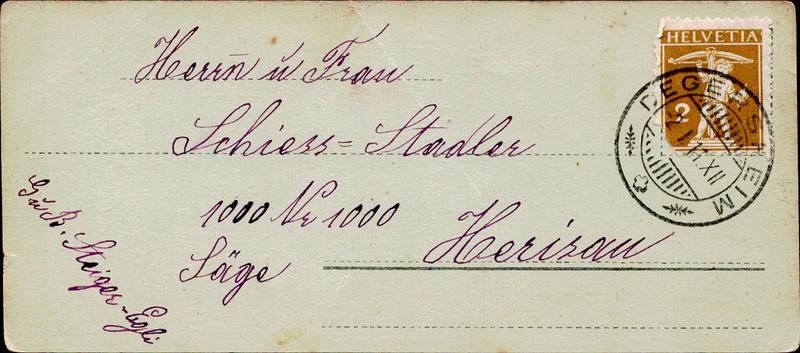 HELVETIA
2
DEGERSHEIM
XII
Herrn u Frau
Schiess=Stadler
1000 Nr 1000
Herisau
Säge
G u B. Steiger-Egli